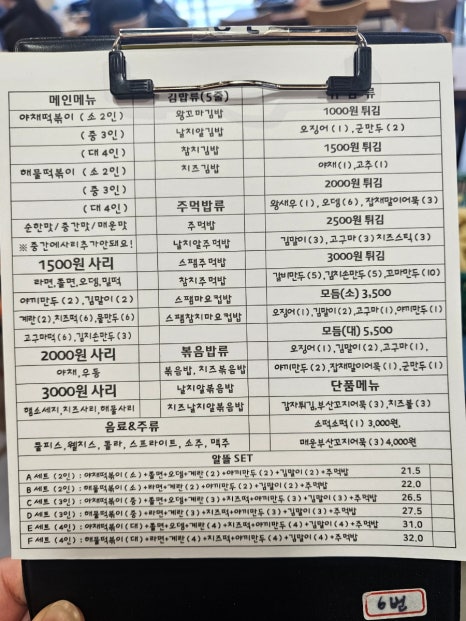 메인메뉴
야채떡볶이 (소 2인)
(중 3인)
(대 4인)
해물떡볶이 (소 2인)
(중 3인)
(대 4인)
순한맛/중간맛/매운맛
※ 중간에사리추가안돼요!
1500원 사리
라면,쫄면,오뎅,밀떡
야끼만두(2),김말이(2)
계란(2),치즈떡(6),물만두(6)
고구마떡(6),김치손만두(3)
2000원 사리
야채,우동
3000원 사리
햄소세지,치즈사리,해물사리
김밥류(5줄)
왕꼬마김밥
날치알김밥
참치김밥
치즈김밥
주먹밥류
주먹밥
날치알주먹밥
스팸주먹밥
참치주먹밥
스팸마요컵밥
스팸참치마요컵밥
볶음밥류
볶음밥, 치즈볶음밥
날치알볶음밥
치즈날치알볶음밥
1000원 튀김
오징어(1),군만두(2)
1500원 튀김
야채(1),고추(1)
2000원 튀김
왕새우(1),오뎅(6),잡채말이어묵(3)
2500원 튀김
김말이(3),고구마(3)치즈스틱(3)
3000원 튀김
갈비만두(5),김치손만두(5),꼬마만두(10)
모듬(소) 3,500
오징어(1),김말이(2),고구마(1),야끼만두(1)
모듬(대) 5,500
오징어(1),김말이(2),고구마(1),
야끼만두(2),잡채말이어묵(1),군만두(1)
단품메뉴
감자튀김,부산꼬지어묵(3),치즈볼(3)
소떡소떡(1) 3,000원,
매운부산꼬지어묵(3)4,000원
음료&주류
쿨피스,웰치스, 콜라, 스프라이트, 소주, 맥주
알뜰 SET
A세트 (2인) : 야채떡볶이(소)+쫄면+오뎅+계란(2)+야끼만두(2)+김말이(2)+주먹밥 21.5
B세트 (2인) : 해물떡볶이(소)+라면+계란(2)+야끼만두(2)+김말이(2)+주먹밥 22.0
C세트 (3인) : 야채떡볶이(중)+쫄면+오뎅+계란(3)+치즈떡+야끼만두(3)+김말이(3)+주먹밥 26.5
D세트 (3인) : 해물떡볶이(중)+라면+계란(3)+치즈떡+야끼만두(3)+김말이(3)+주먹밥 27.5
E세트 (4인) : 야채떡볶이(대)+쫄면+오뎅+계란(4)+치즈떡+야끼만두(4)+김말이(4)+주먹밥 31.0
F세트 (4인) : 해물떡볶이(대)+라면+계란(4)+치즈떡+야끼만두(4)+김말이(4)+주먹밥 32.0
6번